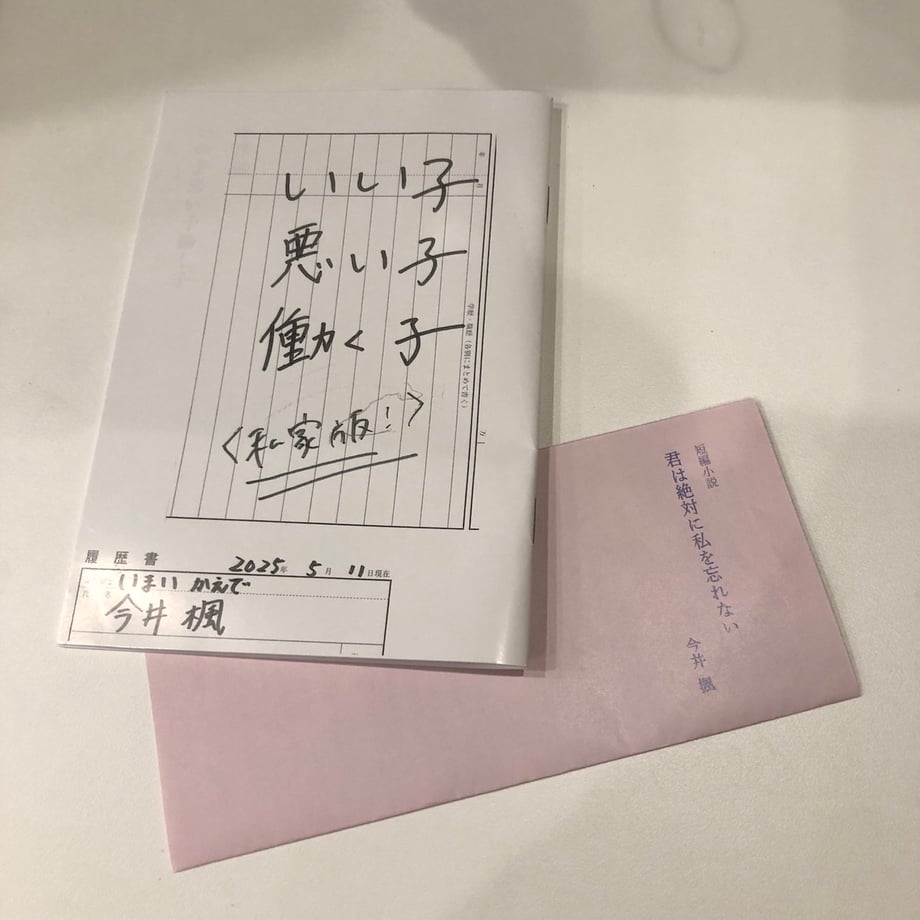 いい子
悪い子
働く子
<私家版!>
学歴・職歴(各別にまとめて書く)
履歴書 2025年 5月 11日現在
いまい かえで
今井 楓
短編小説
君は絶対に私を忘れない
今井 楓